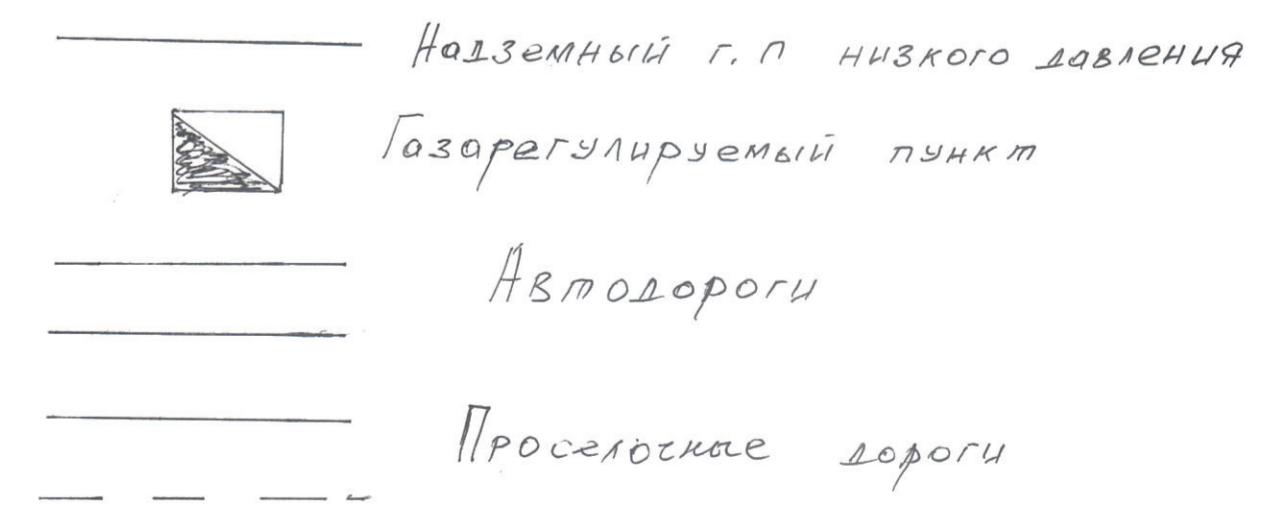 Надземный г. п низкого давления
Газарегулируемый пункт
Автодороги
Проселочные дороги